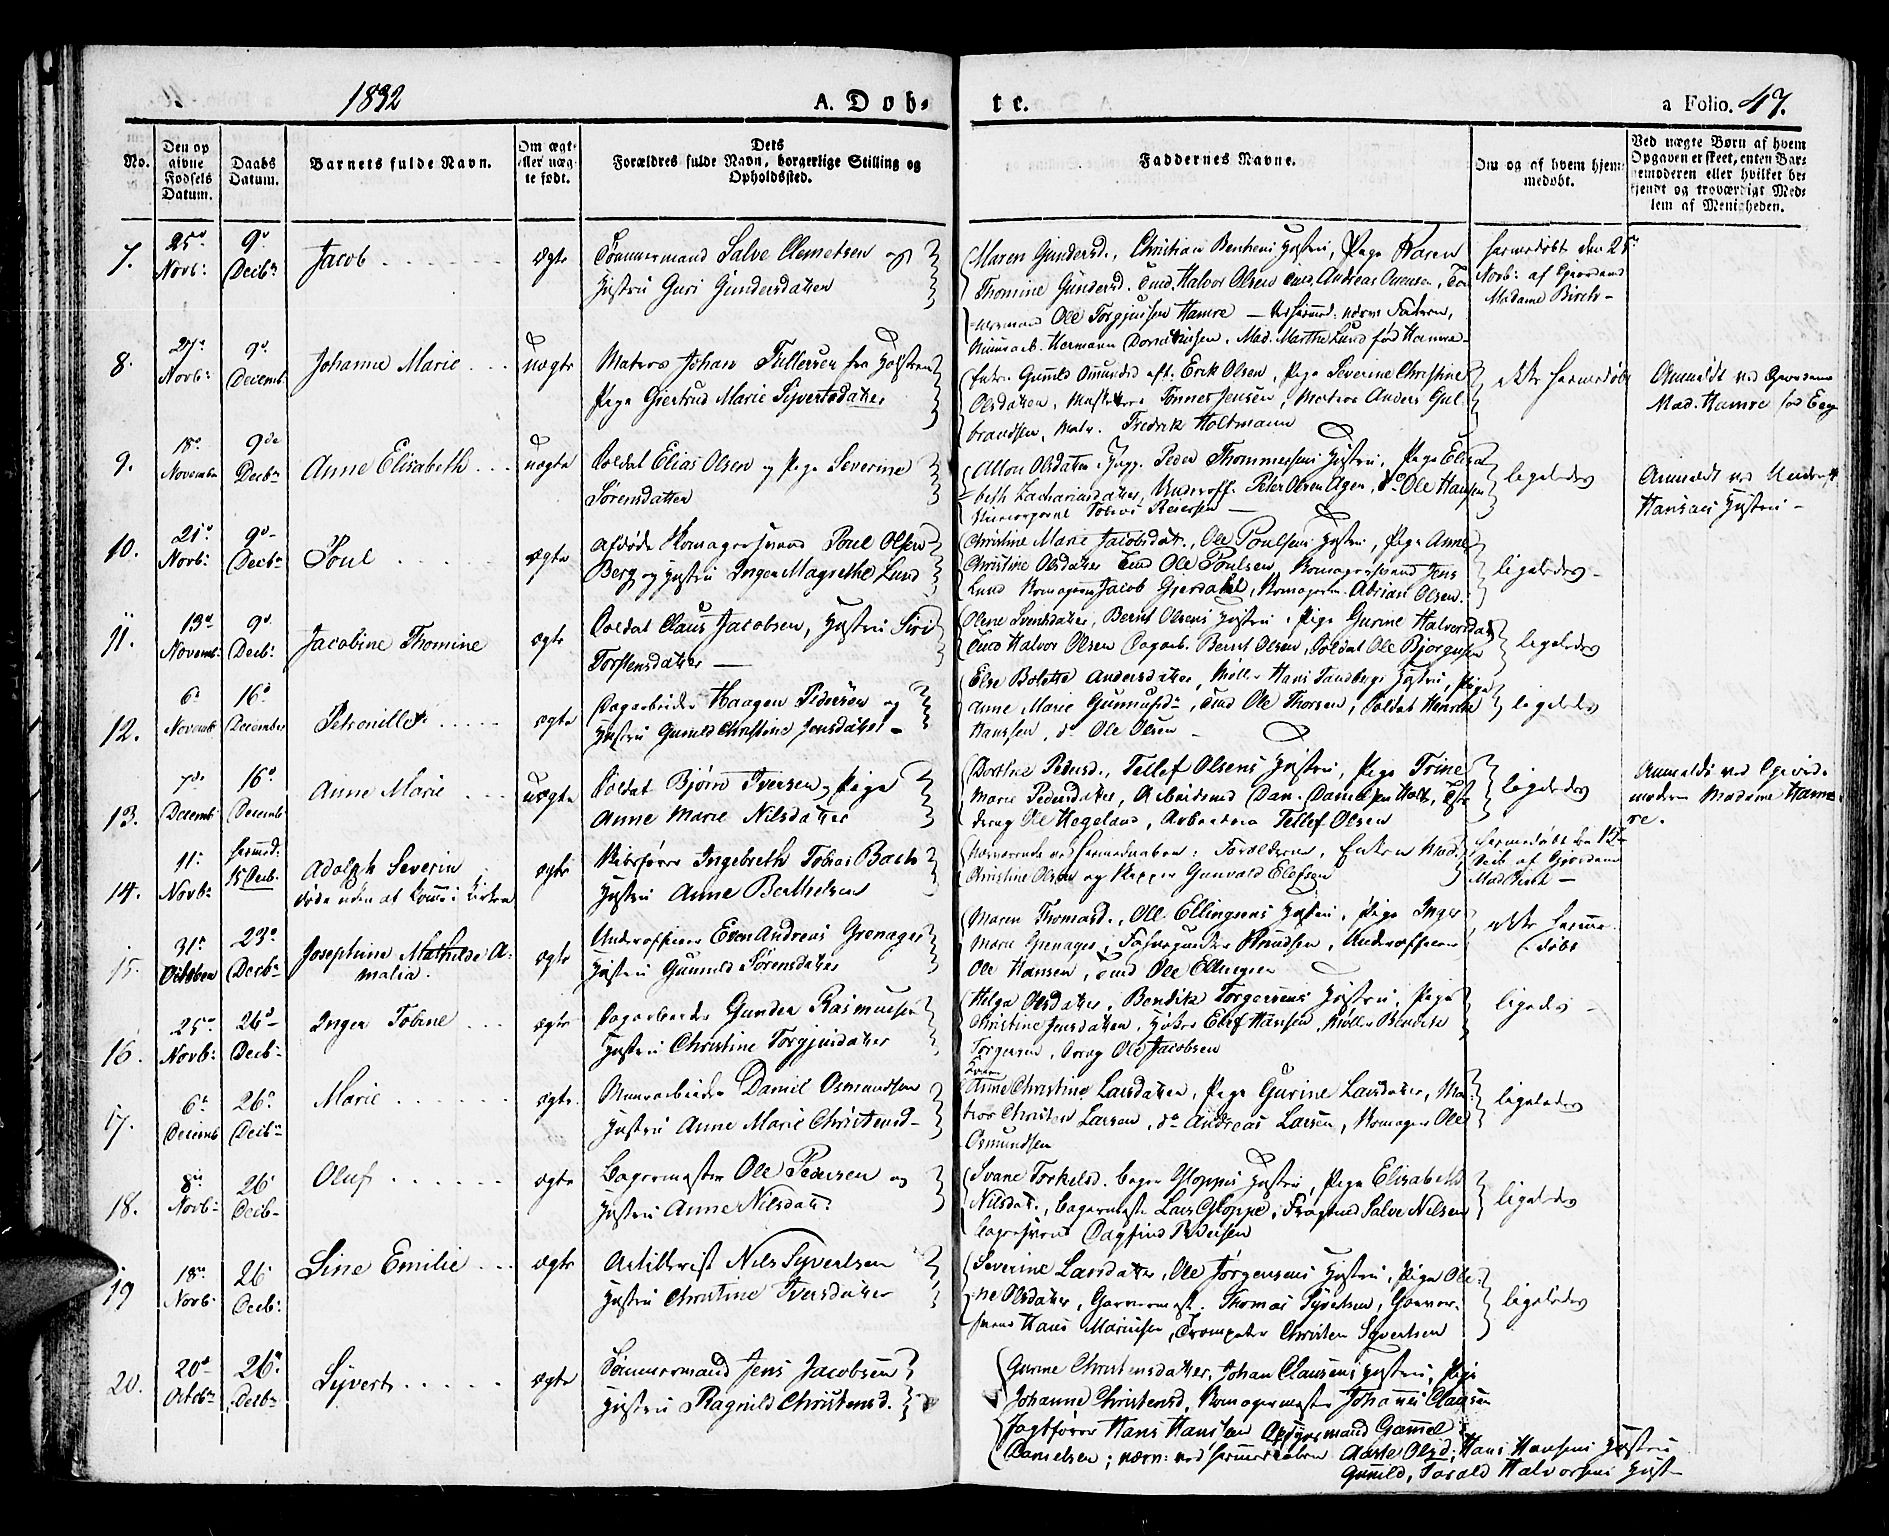 1832
A. Døb-
te.
a Folio. 47.
No.
Den op
givne
Fødsels
Datum.
Daabs
Datum.
Barnets fulde Navn.
Om ægt-
eller uæg-
te født.
Dets
Forældres fulde Navn, borgerlige Stilling og
Opholdssted.
Faddernes Navne.
Om og af hvem hjem-
medøbt.
Ved uægte Børn af hvem
Opgaven er skeet, enten Bar-
nemoderen eller hvilket be-
kjendt og troværdigt Med-
lem af Menigheden.
7.
25de
Novb:
9de
Decbr
Jacob
ægte
Tømmermand Salve Clemetsen og
Hustru Guri Gundersdatter
Maren Gundersd., Christian Hustru, Pige Karen
Thomine Gundersd. Tmd. Halvor Olsen Tmd. Andreas
Ole Torgjusen Hamre
Hermann Mad. Marthe Lund fød Hamre
hjemmedøbt den 25de
Novb: af Gjordemd
Madame Birch
8.
27de
Novb:
9de
Decemb.
Johanne Marie
uægte
Matros Johan Tullersen fra Holsteen
Pige Giertrud Marie Syvertsdatter
Enke Gunild Omundsd. eft. Erik Olsen, Pige Severine Christine
Olsdatter, Tønnes Jensen, Matros Anders Gul-
brandsen, Matr. Fredrik Holtmann
ikke hjemmedøbt
Anmeldt ved Gjordem
Mad. Hamre
9.
18de
November
9de
Decbr
Anne Elisabeth
uægte
Soldat Elias Olsen og Pige Severine
Sørensdatter
Olsdatter, Peder Thommesens Hustru, Pige Elisa-
beth Zachariasdatter, Underoff. Peter Olsen Ager, do Ole Hansen
Tobias Reiersen
ligeledes
Anmeldt ved
Hansens Hustru
10.
21de
Novb:
9de
Decbr
Poul
ægte
Afdøde Skomagersvend Poul Olsen
Berg og Hustru Inger Magrethe Lund
Christine Marie Jacobsdatt., Ole Poulsens Hustru, Pige Anne
Christine Olsdatter Tmd Ole Poulsen, Skomagersvend Jens
Lund Skomagersv. Jacob Gjerdahl, Skomagerm. Adrian Olsen.
ligeledes
11.
13de
Novemb:
9de
Decb:
Jacobine Thomine
ægte
Soldat Claus Jacobsen, Hustru Siri
Torstensdatter
Olene Svensdatter, Bernt Olsens Hustru, Pige Gurine Halvorsdatt
Tmd Halvor Olsen Dagarb. Bernt Olsen, Soldat Ole Bjørgusen
ligeledes
12.
6te
Novemb
16de
December
Petronille
ægte
Dagarbeider Haagen Pedersen og
Hustru Gunild Christine Jensdatter
Else Bolette Andersdatter, Møller Hans Sandbergs Hustru, Pige
Anne Marie Tmd Ole Thorsen, Soldat Henrik
Hanssen, do Ole Olsen
ligeledes
13.
7de
Decemb
16de
Decemb
Anne Marie
uægte
Soldat Bjørn Iversen og Pige
Anne Marie Nilsdatter
Dorthea Pedersd., Tellef Olsens Hustru, Pige Trine
Marie Pedersdatter, Arbeidsmd Dan. Danielsen Holt,
Ole Hegeland, Tellef Olsen
ligeledes
Anmeldt ved Gjorde-
moder Madame Ham-
re.
14.
11te
Novb:
hjemmd:
15 Decb:
Adolph Severin
døde uden at komme i Kirken
ægte
Skibsfører Ingebreth Tobias Bach
Hustru Anne Berthelsen
Nærværende ved Hjemmedaaben: Forældrene, Enken Mad.
Christine Olsen og Skipper Gunvald Elefsen
hjemmedøbt den 15de
Decb af Gjordem
Mad Birch
15.
31te
October
23de
Decbr
Josephine Mathilde A-
malia.
ægte
Underofficer Even Andreas Grenager
Hustru Gunnild Sørensdatter
Maren Thomasd., Ole Ellingsens Hustru, Pige Inger
Marie Grenager, Knudsen, Underofficer
Ole Hansen, Tmd Ole Ellingsen
ikke hjemme-
døbt
16.
25de
Novb:
26de
Decb:
Inger Tobine
ægte
Dagarbeider Gunder Rasmussen
Hustru Christine Torgjusdatter
Helga Olsdatter, Bendik Torgersens Hustru, Pige
Christine Jensdatter, Elef Hansen, Møller Bendik
Torgersen, Ole Jacobsen
ligeledes
17.
6te
Decemb
26de
Decbr
Marie
ægte
Muurarbeider Daniel Osmundsen
Hustru Anne Marie Christensd
Anne Christine Larsdatter, Pige Gurine Larsdatter, Ma-
tros Christen Larsen, do Andreas Larsen, Skomager Ole
Osmundsen
ligeledes
18.
8de
Novb:
26
Decb
Oluf
ægte
Bagermester Ole Pedersen og
Hustru Anne Nilsdatt:
Svane Torkelsd. Bager Gloppes Hustru, Pige Elisabeth
Nilsdatt., Bagermester Lars Gloppe, Salve Nilsen
Bagersvend Dagfind Pedersen
ligeledes
19
18de
Novb:
26
Decb:
Sine Emilie
ægte
Artillerist Nils Syvertsen
Hustru Christine Iversdatter
Severine Larsdatter, Ole Jørgensens Hustru, Pige Ole-
ne Olsdatter, Garvermest. Thomas Syvertsen, Garver-
svend Hans Mariusen, Trompeter Christen Syvertsen
ligeledes
20.
20de
Octobr
26de
Decbr
Syvert
ægte
Tømmermand Jens Jacobsen
Hustru Ragnild Christensd.
Gurine Christensdatter, Johan Clausens Hustru, Pige
Johanne Christensd, Skomagermester Johannes Claasen
Jagtfører Hans Hansen Opsynsmand Gamel
Danielsen; nærv: ved hjemmedaaben Aaste Olsd, Hans Hansens Hustru
Gunild, Torald Halvorsens Hust